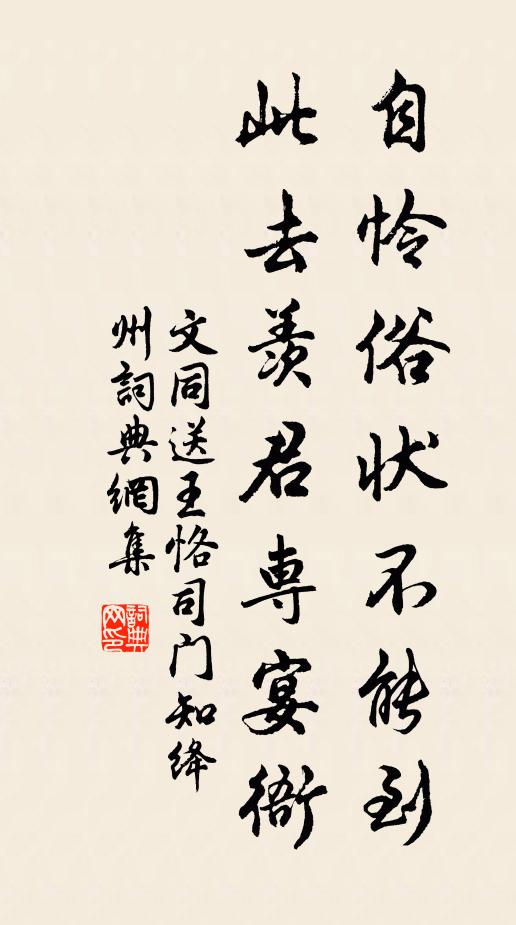 自怜俗状不能到
此去羡君専宴衙
文同送王恪司门知绛
州詞典網集
詞典网印